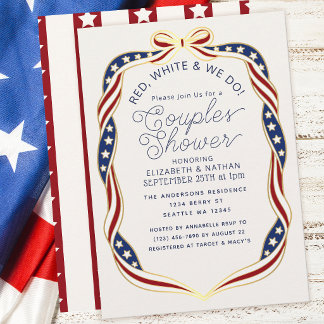 RED, WHITE & WE DO!
Please Join Us for a
Couples
Shower
HONORING
ELIZABETH & NATHAN
SEPTEMBER 25TH at 1PM
THE ANDERSONS RESIDENCE
1232 BERRY ST
SEATTLE WA 12345
HOSTED BY ANNABELLE RSVP TO
(123) 456-7890 BY AUGUST 22
REGISTERED AT TARGET & MACY'S